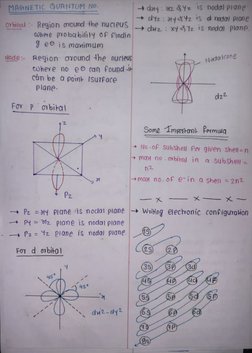 MAGNETIC QUANTUM NO.
Orbital:- Region around the nucleus
where probability of findin
g e⊖ is maximum
Node:- Region around the nucleus
where no e⊖ can found →
can be a point /surface
plane.
For p orbital
z
y
x
Pz
→ Pz = xy plane its nodal plane
→ Py = xz plane is nodal plane
plane is nodal plane
For d orbital
y
45°
45°
x
dx²-dy²
→ dxy : xz & yz is nodal plane
is d nodal plane
is nodal plane
Nodal cone
dz²
Some Important Formula
→ No. of subshell Per given shell = n
→ max no. orbital in a subshell =
n²
→ max no. of e⁻ in a shell = 2n²
— x — x — x —
→ Writing electronic configuration
1S
2S 2P
3S 3P 3d
4S 4P 4d 4F
5S 5P 5d 5F
6S 6P 6d
7S 7P
8S